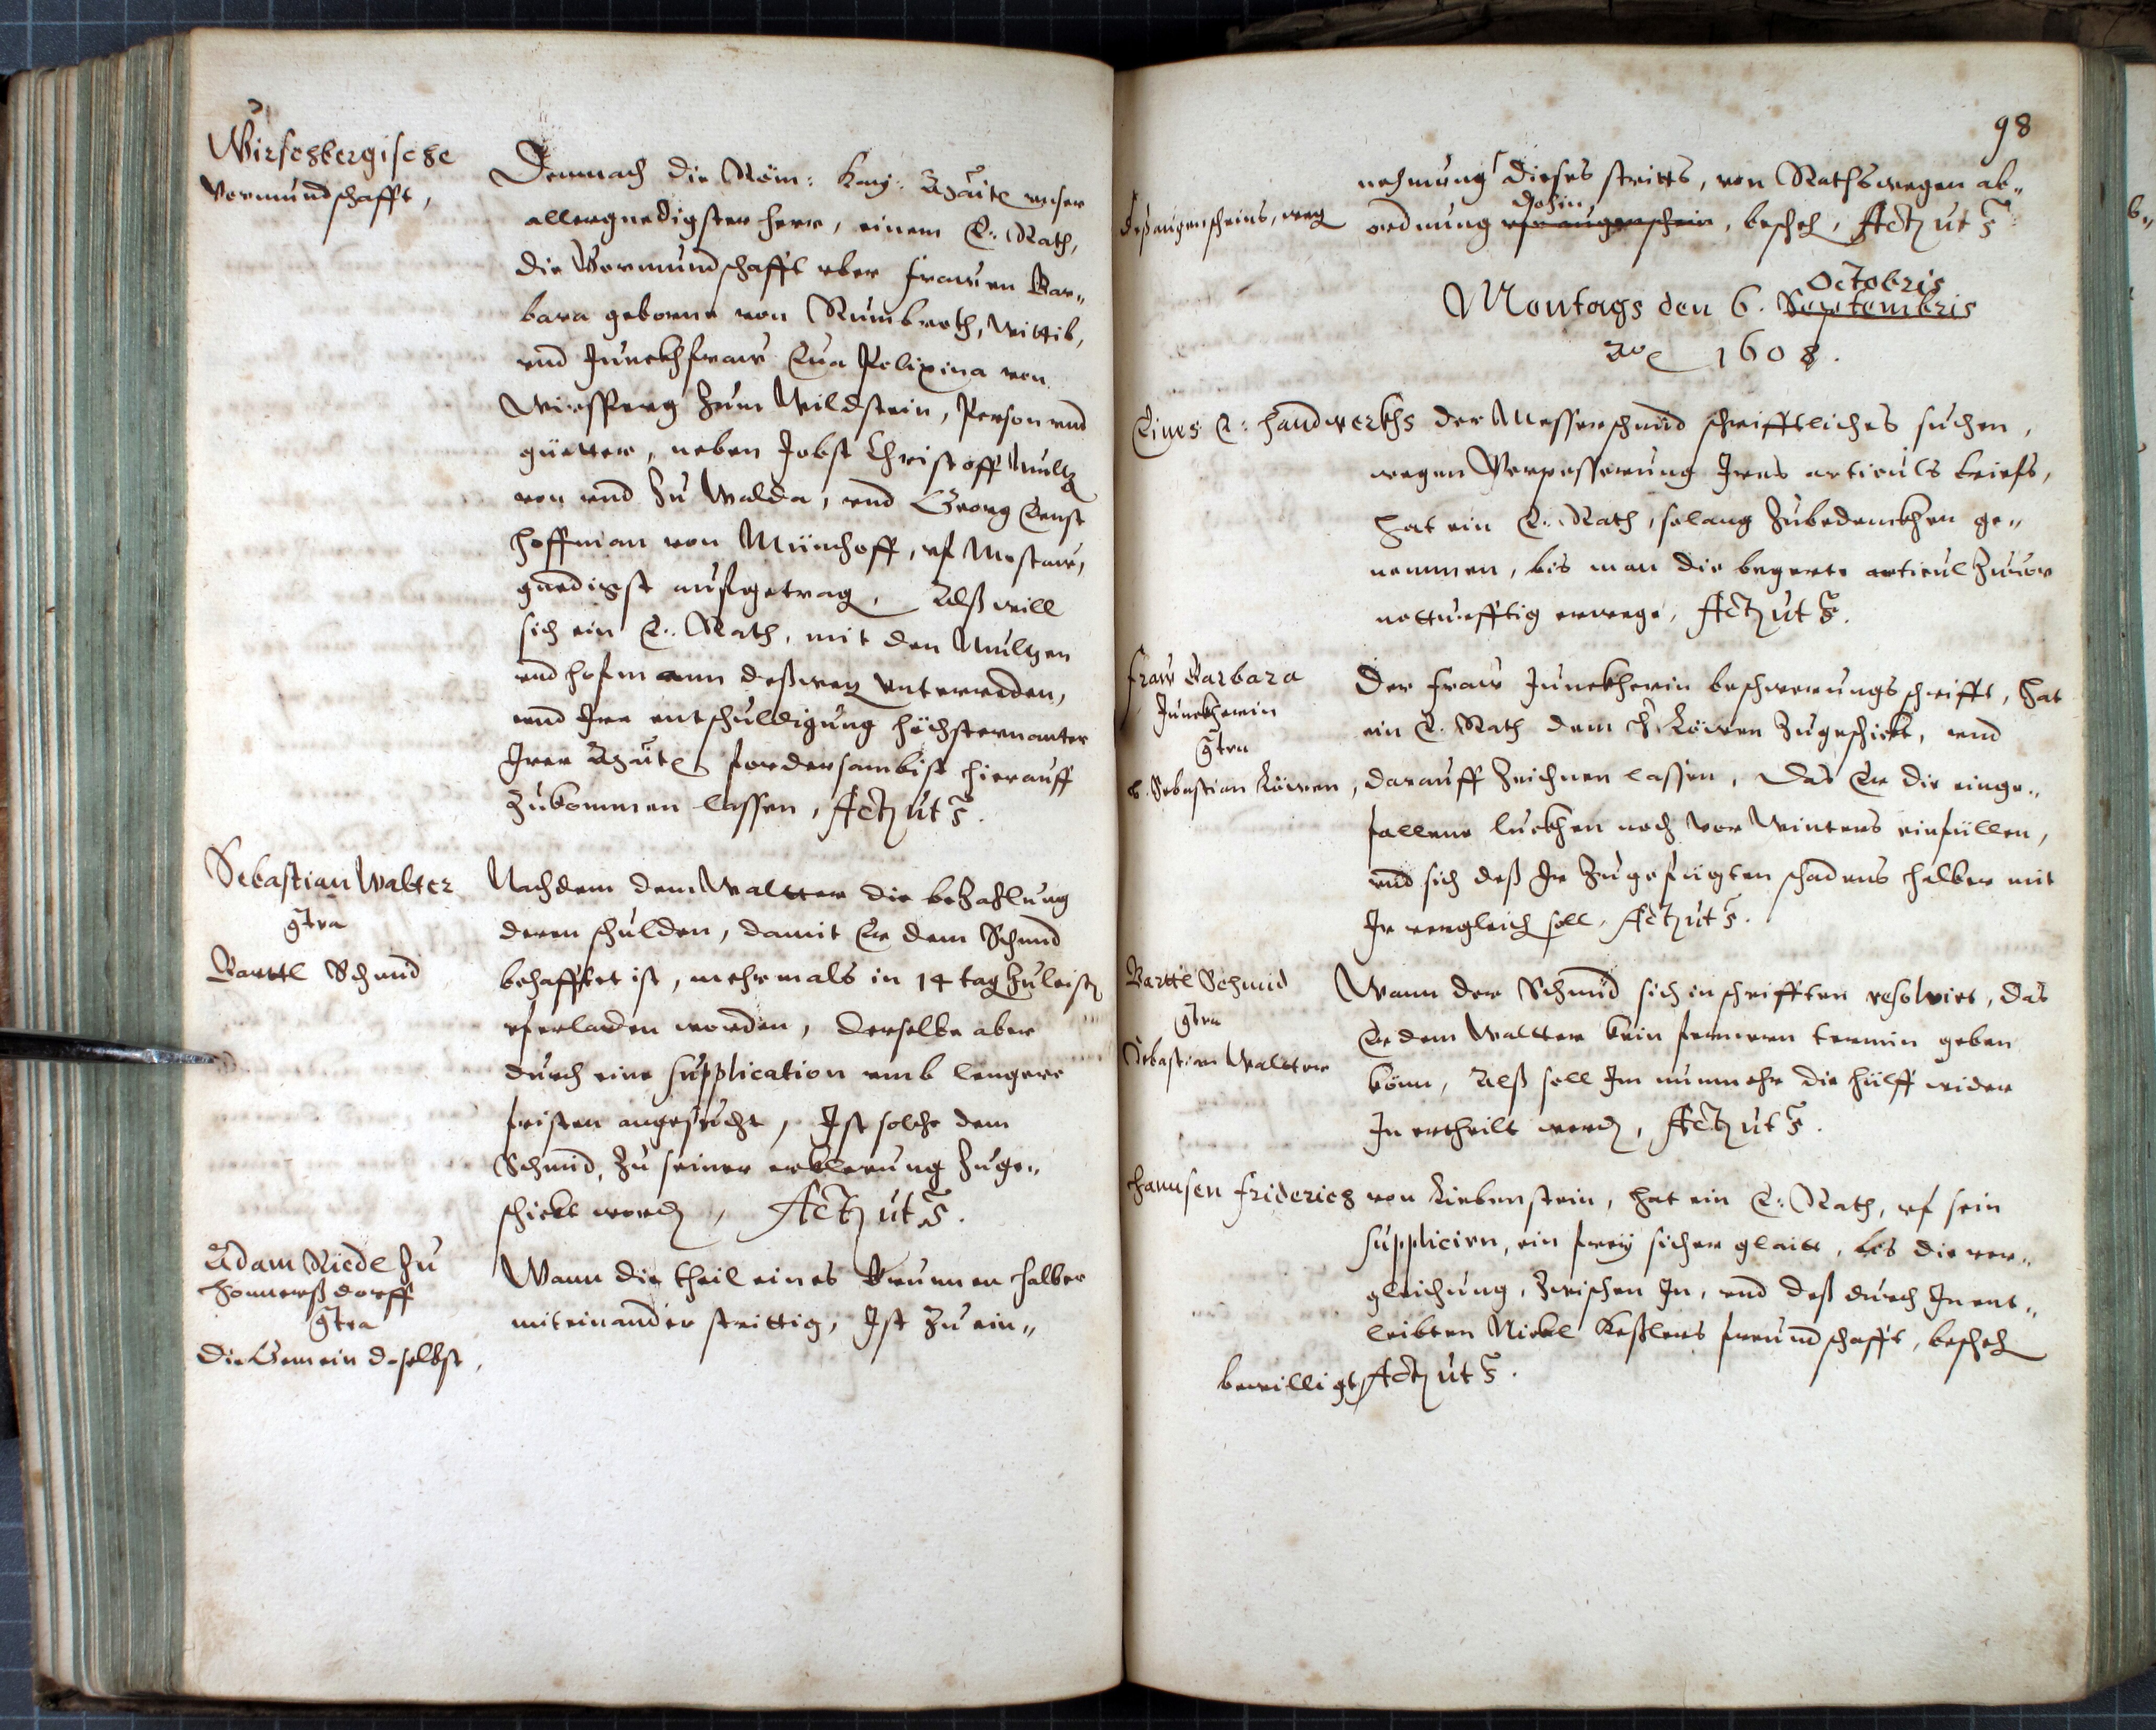 Wirschbergische
Vormundschafft,
Demnach die Röm: Kay: Maitt unser
allergnedigster herr, einem E: Rath,
die Vormundschafft uber frauen Bar„
bara geborne von Rumbroth, wittib,
und Junckhfraw Eva Polixina von
Wirsperg zum Wildstein, Person und
güetter, neben Jobst Christoff Multz
von und zu Walda, und Georg Ernst
hoffman von Münchoff, uf Mostaw,
gnedigst aufgetrag, Alß will
sich ein E: Rath, mit den Multzen
und hofmann deßweg unterreden,
und Ire entschuldigung höchsternanter
Irer Maitt fordersambist hierauff
zukommen lassen, Act ut s.
Sebastian Walter
gtra
Barttl Schmid
Nachdem dem Waltter die bezahlung
deren schulden, damit Er dem Schmid
behafftet ist, mehrmals in 14 tag zuleist
uferladen worden, derselbe aber
durch eine supplication umb lengere
fristen angesucht, Ist solche dem
Schmid, zu seiner erklerung zuge„
schickt word, Act ut s.
Adam Riedl zu
Sonnerßdorff
gtra
die Gemein doselbst,
Wann die theil eines Brunnen halber
miteinander strittig, Ist zu ein„
98
nehmung dieses stritts, von Rathswegen ab„
deß augenscheins, weg
dohin
ordnung ufn augenschein, bescheh, Act ut s.
Octobris
Montags den 6. Septembris
Ao 1608.
Eines E: handwerkhs der Messerschmid schrifftliches suchen,
wegen Verpesserung Ires articuls briefs,
hat ein E: Rath, solang zubedenckhen ge„
nommen, bis man die begerte articul zuvor
nottürfftig erwege, Act ut s.
fraw Barbara
Junckherin
gtra
h. Sebastian Löwen,
Der fraw Junckherin beschwerungsschrifft, hat
ein E. Rath dem h. Löwen zugeschickt, und
darauff zeichnen lassen, das Er die einge„
fallene luckhen noch vor winters einfüllen,
und sich deß Ir zugefügten schadens halber mit
Ir vergleich soll, Act ut s.
Barttl Schmid
gtra
Sebastian Waltter
Wann der Schmid sich in schrifften resolvirt, das
Er dem Waltter kein fernern termin geben
könn, Alß soll Im nunmehr die hülff wider
In ertheilt werd, Act ut s.
Hannsen friderich von Liebenstein, hat ein E: Rath, uf sein
supplicirn, ein frey sicher glaitt, bis die ver„
gleichung, zwischen In, und deß durch In ent„
leibten Nickl Keßlers freundschafft, bescheh
bewilligt, Act ut s.